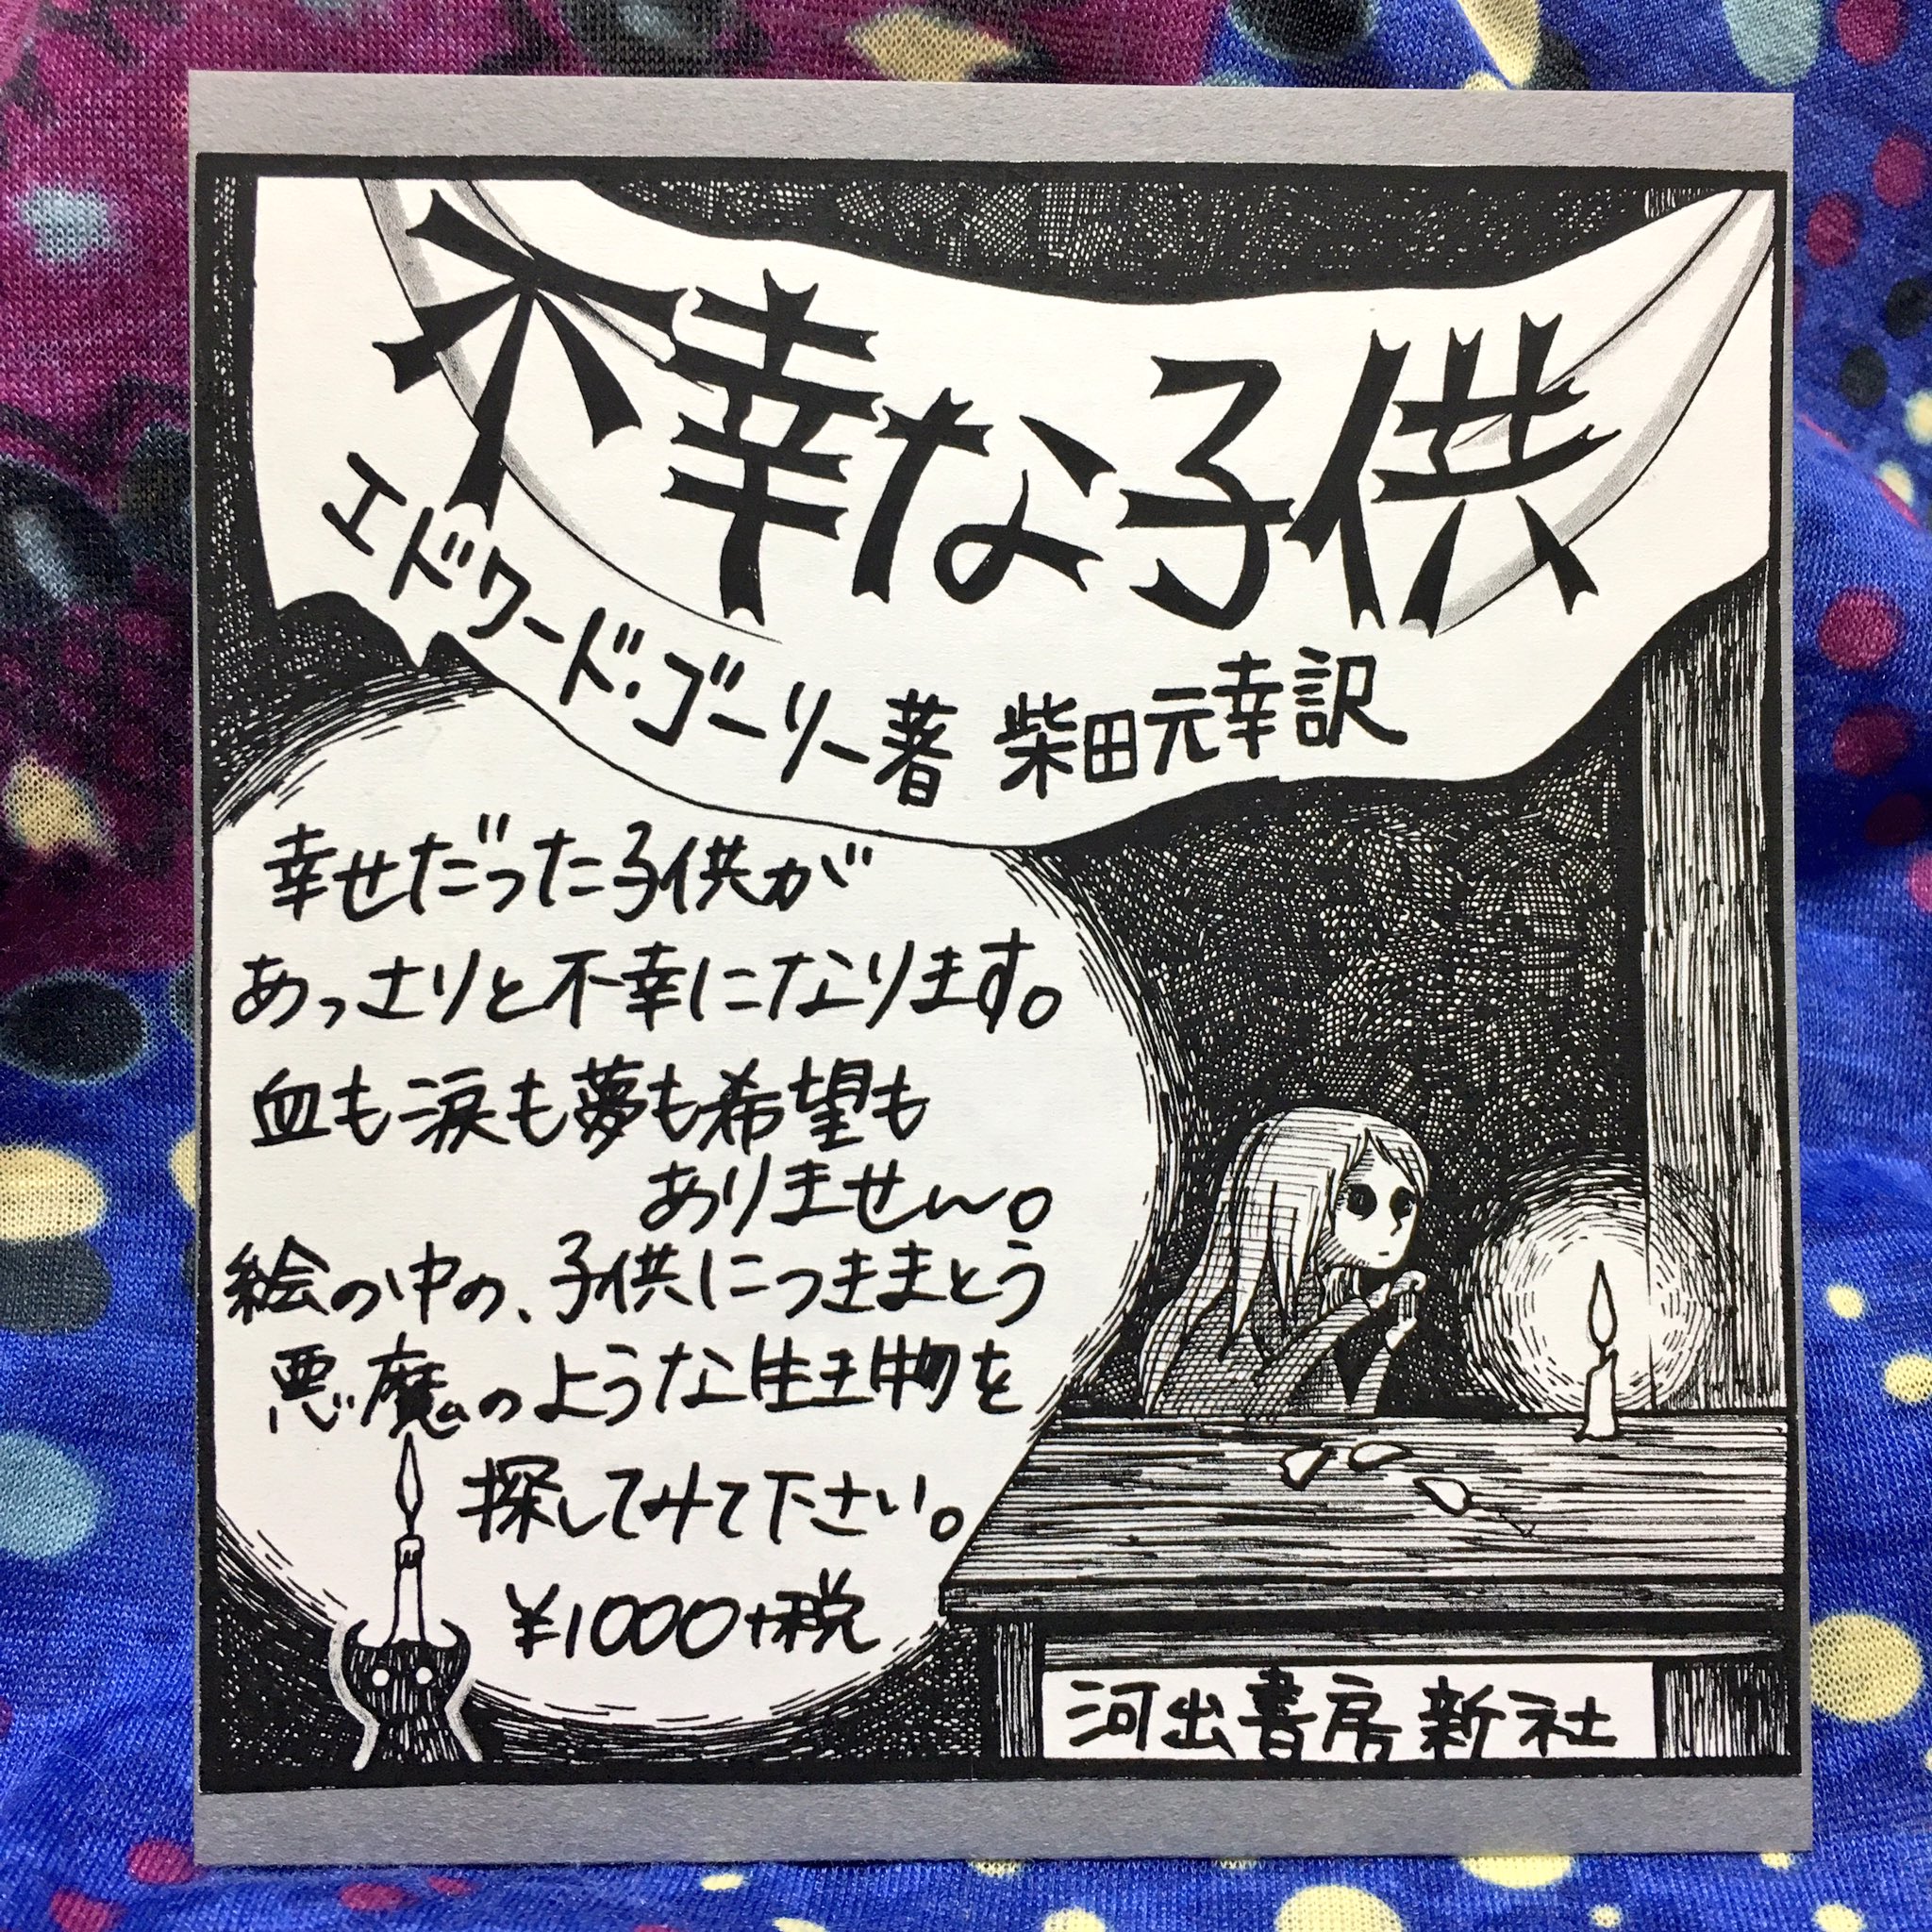 不幸な子供
エドワード・ゴーリー著 柴田元幸訳
幸せだった子供が
あっさりと不幸になります。
血も涙も夢も希望も
ありません。
絵の中の、子供につきまとう
悪魔のような生き物を
探してみて下さい。
¥1000+税
河出書房新社